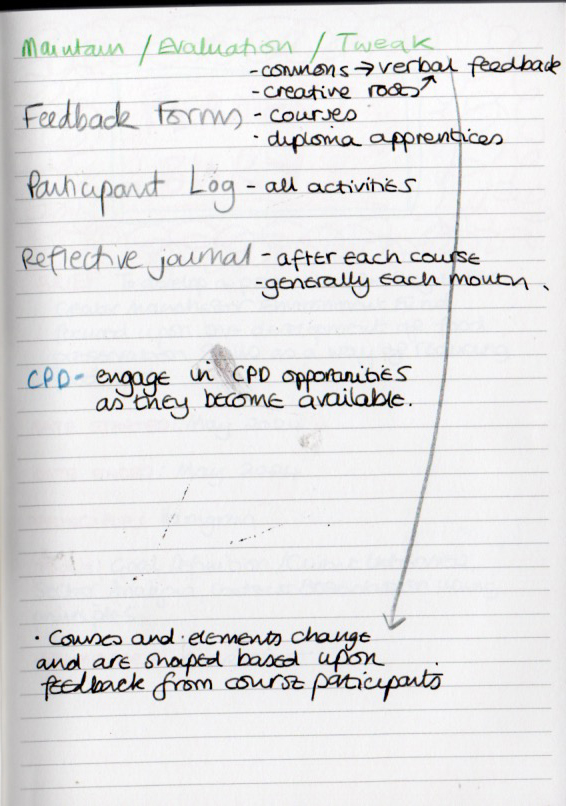 Maintain / Evaluation / Tweak
- commons → verbal feedback
- creative roots
Feedback Forms - courses
· diploma apprentices
Participant Log - all activities
Reflective journal - after each course
- generally each month.
CPD - engage in CPD opporunities
as they become available.
· Courses and elements change
and are shaped based upon
feedback from course participants